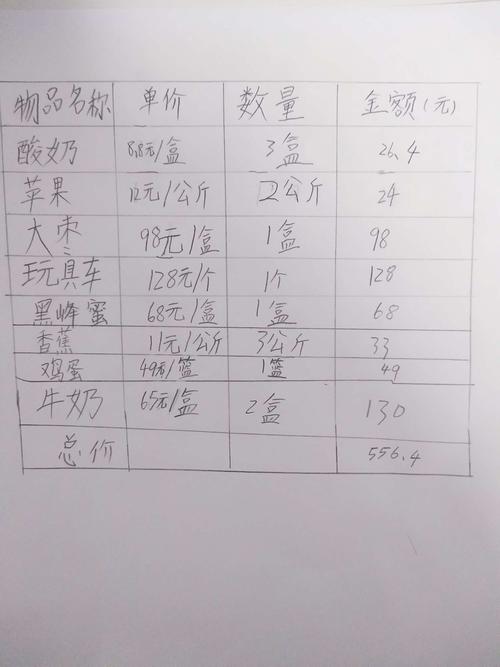 物品名称 单价 数量 金额(元)
酸奶 8.8元/盒 3盒 26.4
苹果 12元/公斤 2公斤 24
大枣 98元/盒 1盒 98
玩具车 128元/个 1个 128
黑峰蜜 68元/盒 1盒 68
香蕉 11元/公斤 3公斤 33
鸡蛋 49元/篮 1篮 49
牛奶 65元/盒 2盒 130
总价 556.4